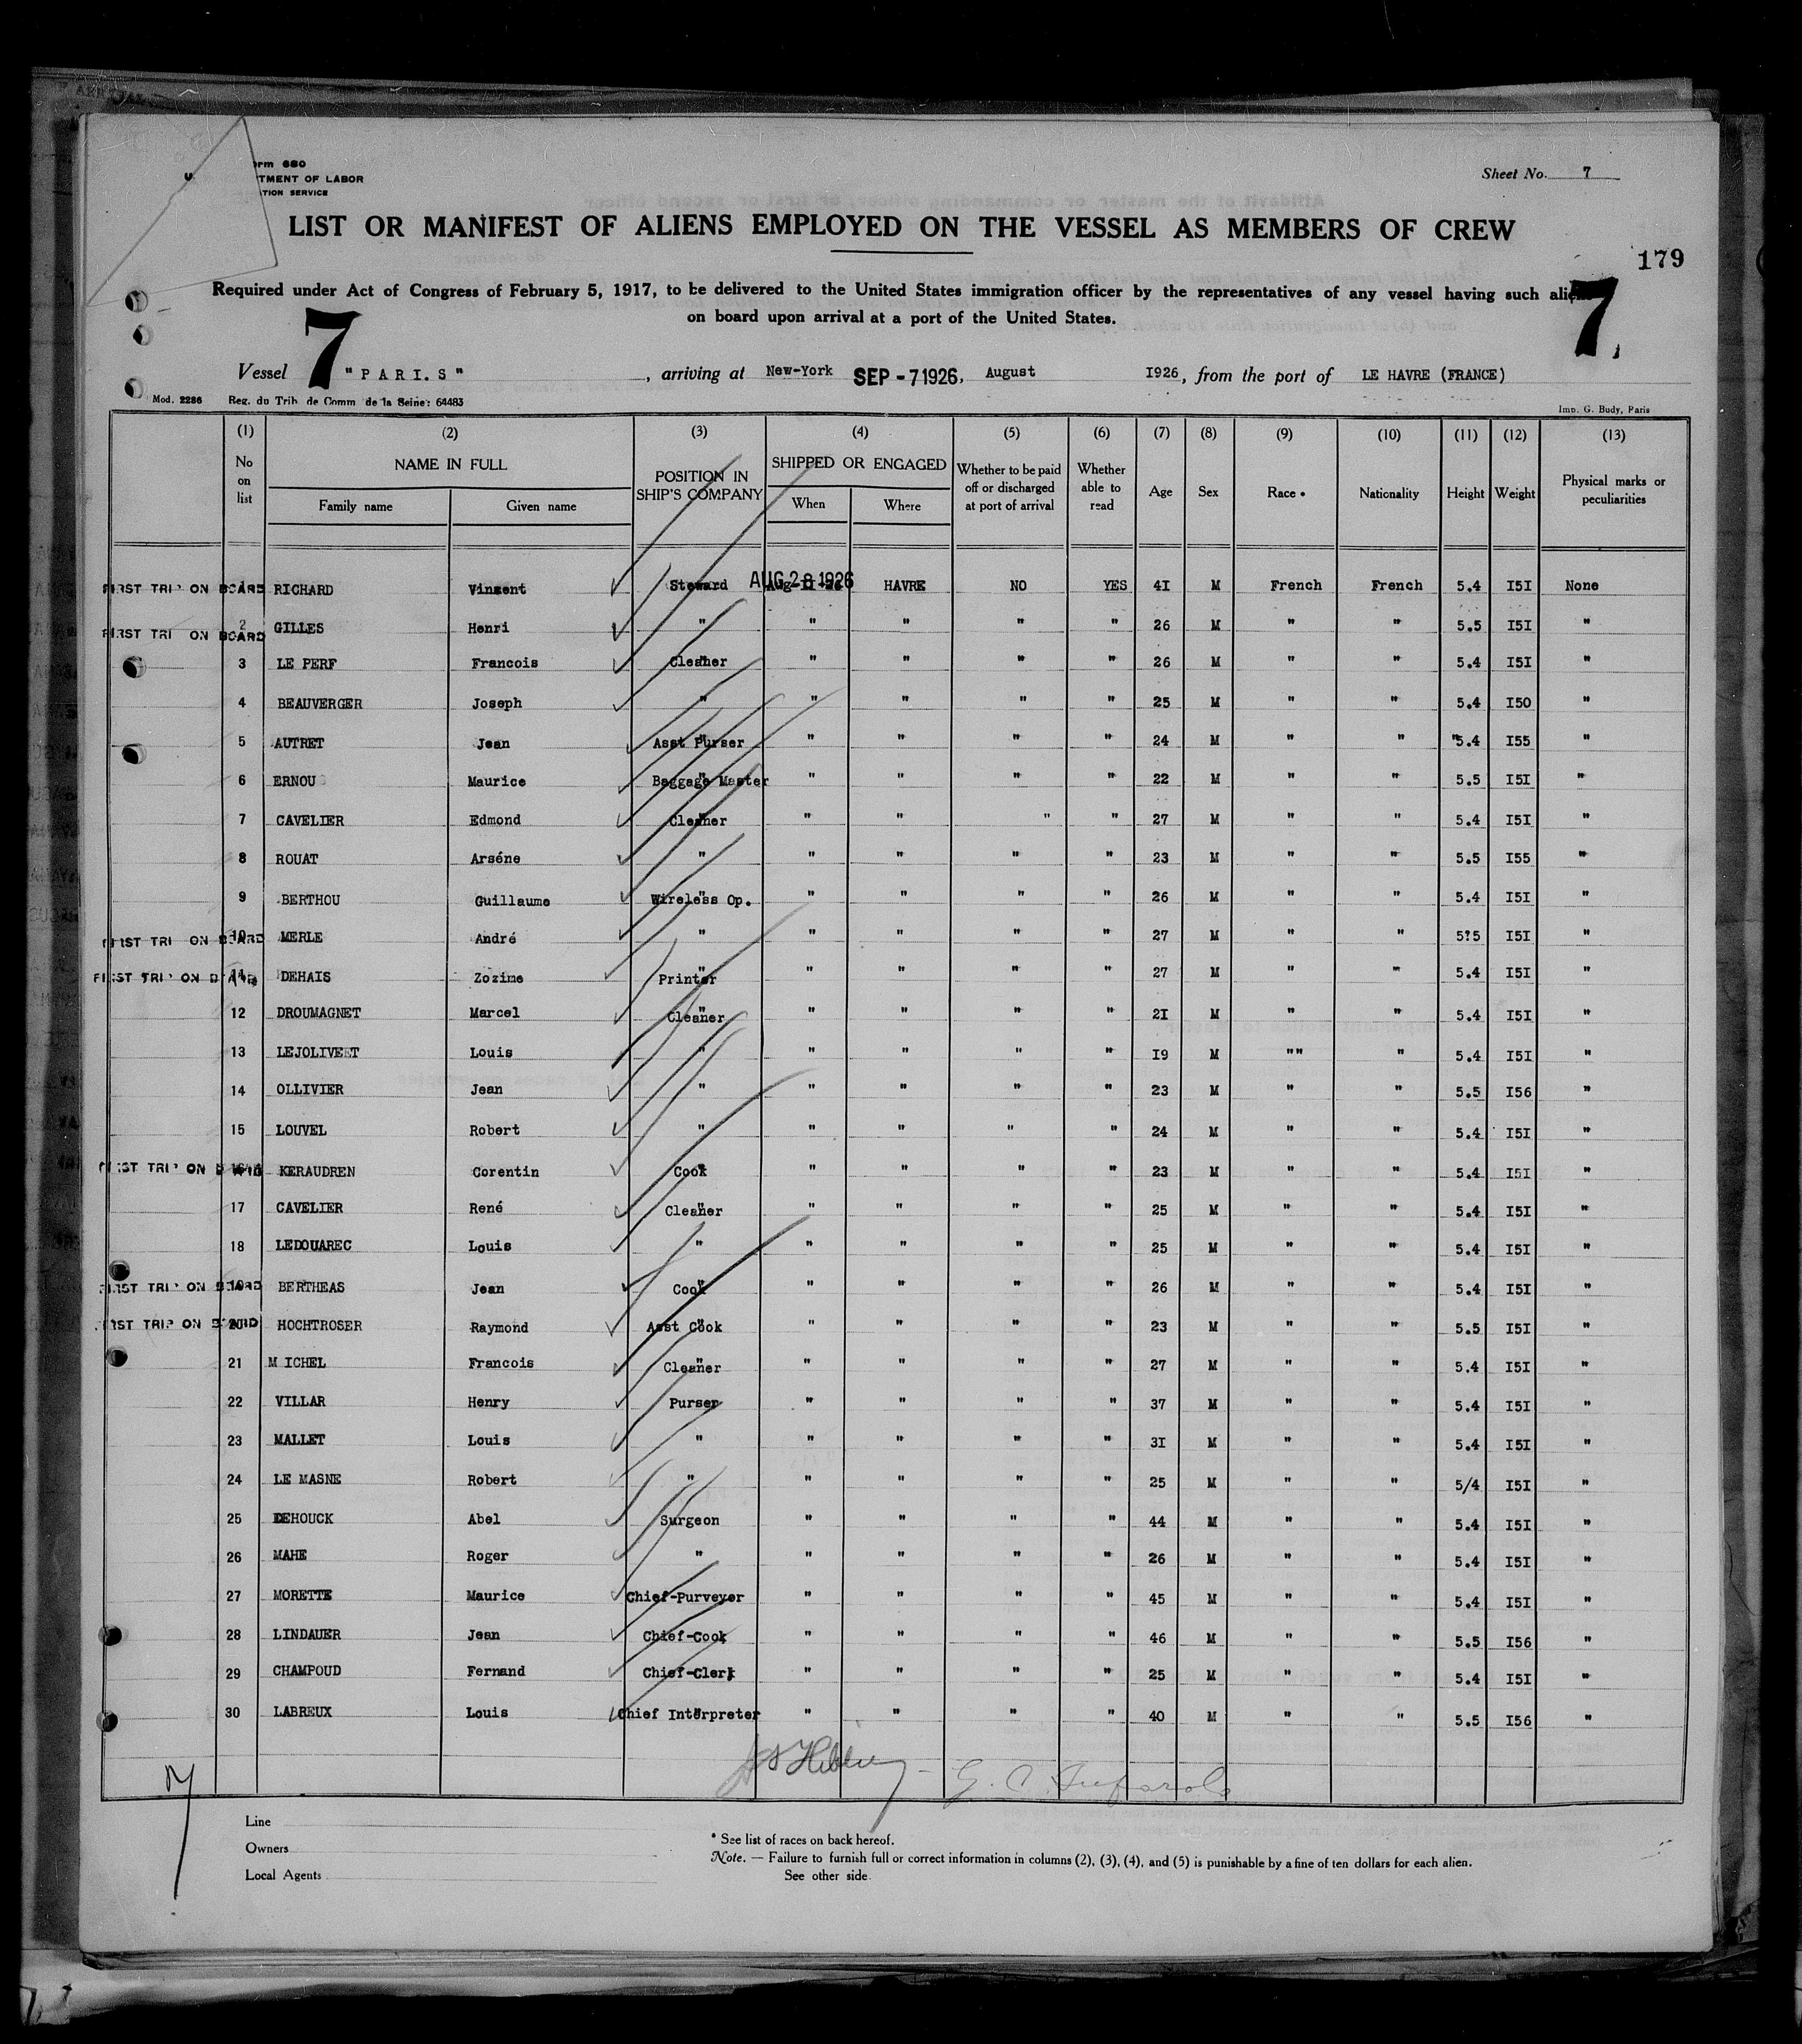 orm 680
U TMENT OF LABOR
TION SERVICE
Sheet No. 7
LIST OR MANIFEST OF ALIENS EMPLOYED ON THE VESSEL AS MEMBERS OF CREW
179
Required under Act of Congress of February 5, 1917, to be delivered to the United States immigration officer by the representatives of any vessel having such aliens
on board upon arrival at a port of the United States.
7 7
Vessel "PARI.S", arriving at New-York SEP - 7 1926, August 1926, from the port of LE HAVRE (FRANCE)
Mod. 2286 Reg. du Trib. de Comm de la Seine: 64483 Imp. G. Budy, Paris
(1) (2) (3) (4) (5) (6) (7) (8) (9) (10) (11) (12) (13)
No on list NAME IN FULL Family name Given name POSITION IN SHIP'S COMPANY SHIPPED OR ENGAGED When Where Whether to be paid off or discharged at port of arrival Whether able to read Age Sex Race * Nationality Height Weight Physical marks or peculiarities
FIRST TRIP ON BOARD 1 RICHARD Vincent Steward AUG 28 1926 HAVRE NO YES 4I M French French 5.4 I5I None
FIRST TRI ON BOARD 2 GILLES Henri " " " " " 26 M " " 5.5 I5I "
3 LE PERF Francois Cleaner " " " " 26 M " " 5.4 I5I "
4 BEAUVERGER Joseph " " " " " 25 M " " 5.4 I50 "
5 AUTRET Jean Asst Purser " " " " 24 M " " "5.4 I55 "
6 ERNOU Maurice Baggage Master " " " " 22 M " " 5.5 I5I "
7 CAVELIER Edmond Cleaner " " " " 27 M " " 5.4 I5I "
8 ROUAT Arséne " " " " " 23 M " " 5.5 I55 "
9 BERTHOU Guillaume Wireless Op. " " " " 26 M " " 5.4 I5I "
FIRST TRI ON BOARD 10 MERLE André " " " " " 27 M " " 5?5 I5I "
FIRST TRIP ON BOARD 11 DEHAIS Zozime Printer " " " " 27 M " " 5.4 I5I "
12 DROUMAGNET Marcel Cleaner " " " " 2I M " " 5.4 I5I "
13 LEJOLIVEET Louis " " " " " I9 M "" " 5.4 I5I "
14 OLLIVIER Jean " " " " " 23 M " " 5.5 I56 "
15 LOUVEL Robert " " " " " 24 M " " 5.4 I5I "
FIRST TRIP ON BOARD 16 KERAUDREN Corentin Cook " " " " 23 M " " 5.4 I5I "
17 CAVELIER René Cleaner " " " " 25 M " " 5.4 I5I "
18 LEDOUAREC Louis " " " " " 25 M " " 5.4 I5I "
FIRST TRIP ON BOARD 19 BERTHEAS Jean Cook " " " " 26 M " " 5.4 I5I "
FIRST TRIP ON BOARD 20 HOCHTROSER Raymond Asst Cook " " " " 23 M " " 5.5 I5I "
21 M ICHEL Francois Cleaner " " " " 27 M " " 5.4 I5I "
22 VILLAR Henry Purser " " " " 37 M " " 5.4 I5I "
23 MALLET Louis " " " " " 3I M " " 5.4 I5I "
24 LE MASNE Robert " " " " " 25 M " " 5/4 I5I "
25 DEHOUCK Abel Surgeon " " " " 44 M " " 5.4 I5I "
26 MAHE Roger " " " " " 26 M " " 5.4 I5I "
27 MORETTE Maurice Chief-Purveyer " " " " 45 M " " 5.4 I5I "
28 LINDAUER Jean Chief-Cook " " " " 46 M " " 5.5 I56 "
29 CHAMPOUD Fernand Chief-Clerk " " " " 25 M " " 5.4 I5I "
30 LABREUX Louis Chief Interpreter " " " " 40 M " " 5.5 I56 "
Line
Owners
Local Agents
* See list of races on back hereof.
Note. — Failure to furnish full or correct information in columns (2), (3), (4), and (5) is punishable by a fine of ten dollars for each alien.
See other side.